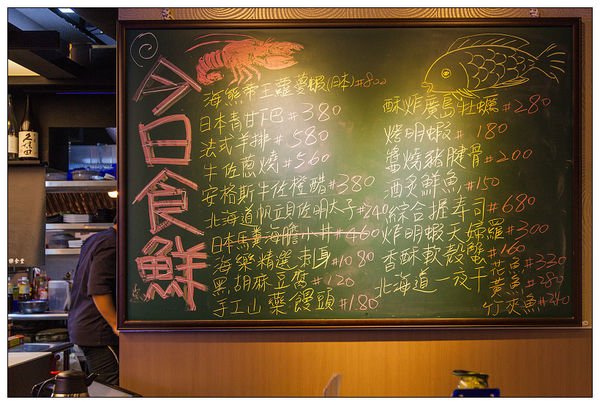 今日食鮮
海熊帝王蘿蔓蝦(日本)#800
日本青甘下巴#380
法式羊排#580
牛佐蔥燒#560
安格斯牛佐橙醋#380
北海道帆立貝佐明太子#240
日本馬糞海膽小丼#460
海樂精選刺身#1080
黑胡麻豆腐#120
手工山藥饅頭#180
酥炸廣島牡蠣#280
烤明蝦#180
醬燒豬腱骨#200
酒烹鮮魚#150
綜合握壽司#680
炸明蝦天婦羅#300
香酥軟殼蟹#160
北海道一夜干 花魚#330
黃魚#280
竹夾魚#240